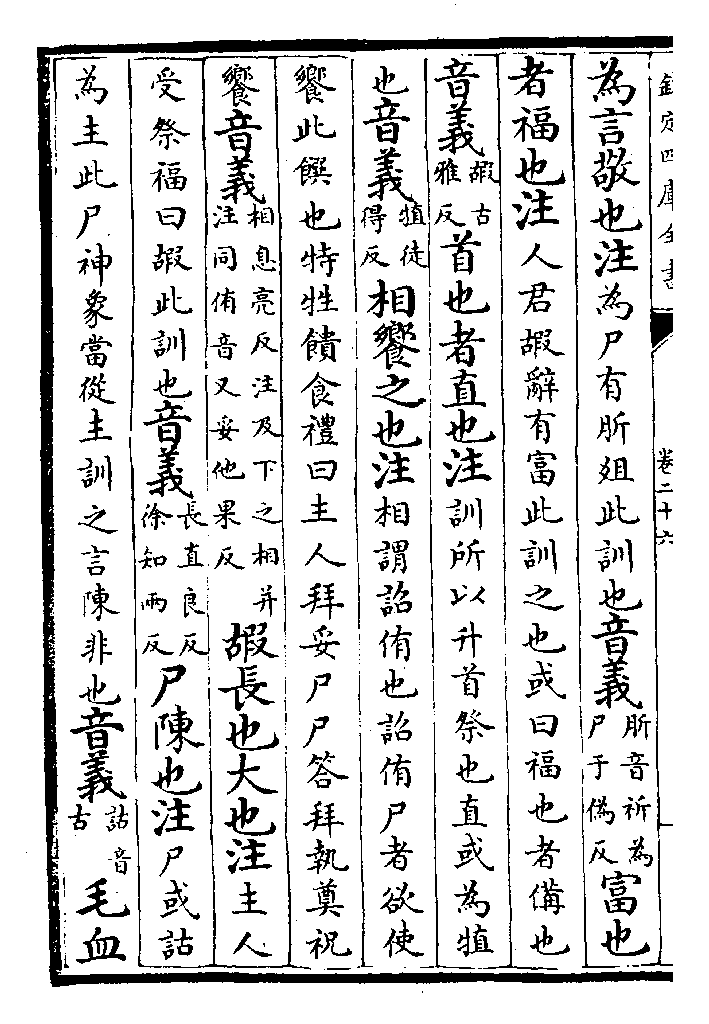 欽定四庫全書
卷二十六
為言敬也注為尸有肵俎此訓也音義肵音祈為尸于偽反富也
者福也注人君嘏辭有富此訓之也或曰福也者備也
音義嘏古雅反首也者直也注訓所以升首祭也直或為犆
也音義犆徒得反相饗之也注相謂詔侑也詔侑尸者欲使
饗此饌也特牲饋食禮曰主人拜妥尸尸答拜執奠祝
饗音義相息亮反注及下之相并注同侑音又妥他果反嘏長也大也注主人
受祭福曰嘏此訓也音義長直良反徐知兩反尸陳也注尸或詁
為主此尸神象當從主訓之言陳非也音義詁音古毛血